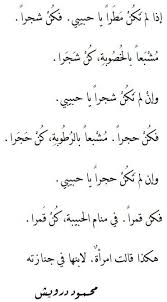 إذا لم تكُنْ مَطَراً يا حبيبي. فكُنْ شجراً.
مُشْبَعاً بالخُصُوبةِ، كُنْ شَجَرا.
وإنْ لم تكُنْ شجراً يا حبيبي.
فكُنْ حجراً. مُشْبعاً بالرُطُوبةِ، كُنْ حَجَرا.
وإن لم تكُنْ حجراً يا حبيبي.
فكن قمراً. في منام الحبيبة، كُنْ قمرا.
هكذا قالت امرأةٌ. لابنها في جنازته
محمود درويش